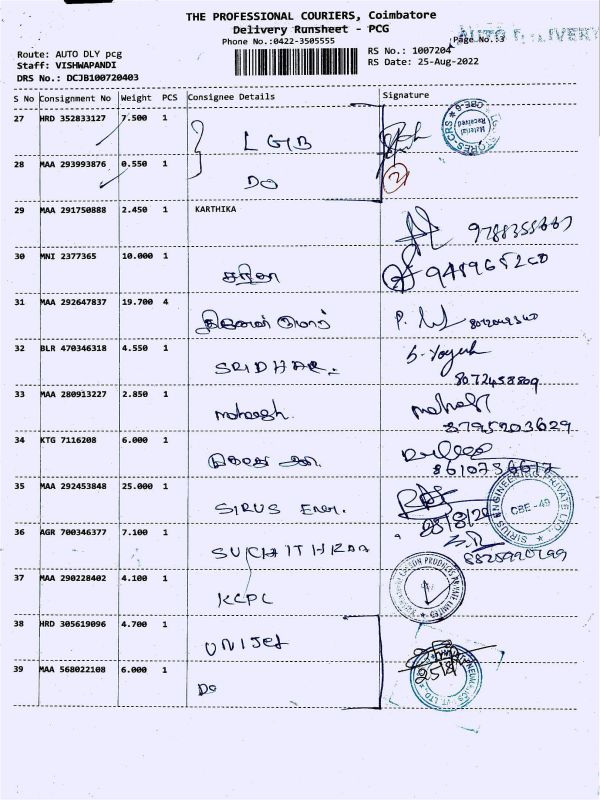 THE PROFESSIONAL COURIERS, Coimbatore
Delivery Runsheet - PCG
AUTO DELIVERY
Phone No.:0422-3505555
Page No.:3
Route: AUTO DLY pcg
RS No.: 1007204
Staff: VISHWAPANDI
RS Date: 25-Aug-2022
DRS No.: DCJB100720403
S No Consignment No Weight PCS Consignee Details Signature
27 HRD 352833127 7.500 1 LGB
Material Received
28 MAA 293993876 0.550 1 DO 2
29 MAA 291750888 2.450 1 KARTHIKA
30 MNI 2377365 10.000 1
31 MAA 292647837 19.700 4
32 BLR 470346318 4.550 1 SRIDHAR. S. Yogesh
8072458809
33 MAA 280913227 2.850 1 mahesh
8795203629
34 KTG 7116208 6.000 1
35 MAA 292453848 25.000 1 SIRUS Ener.
SIRIUS ENGINEERING PRIVATE LTD. CBE-49
36 AGR 700346377 7.100 1 SUCHITHRAA
37 MAA 290228402 4.100 1 KCPL
38 HRD 305619096 4.700 1 UNIJet
39 MAA 568022108 6.000 1 DO
25/8